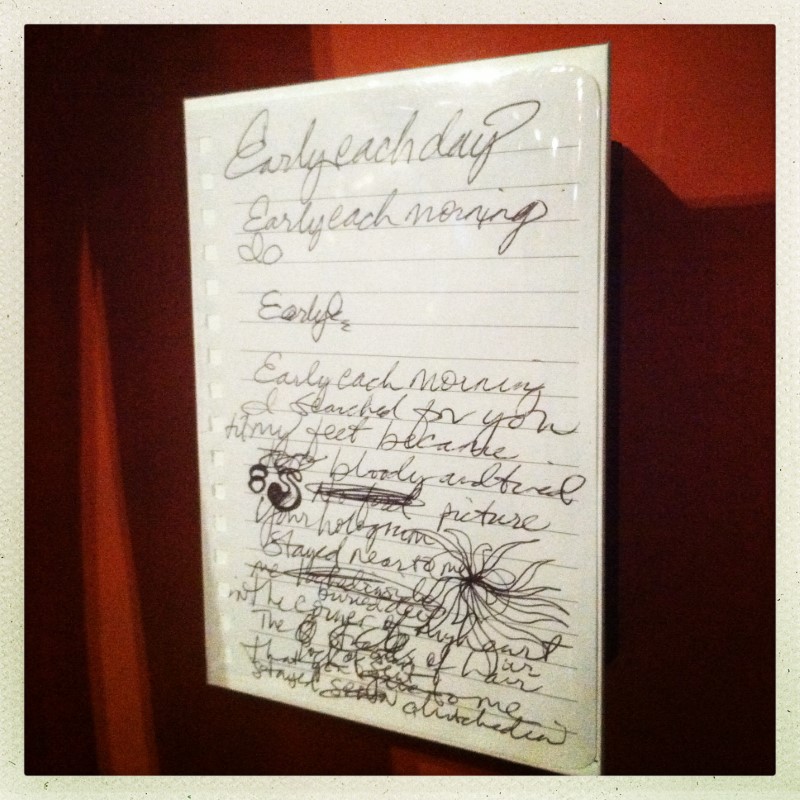 Early each day
Early each morning
I
Early
Early each morning
I searched for you
til my feet became
bloody and tired
picture
Your hologram
Stayed near to me
me
buried deep
in the corner of my heart
The strands of hair
that you gave to me
stayed clutched in